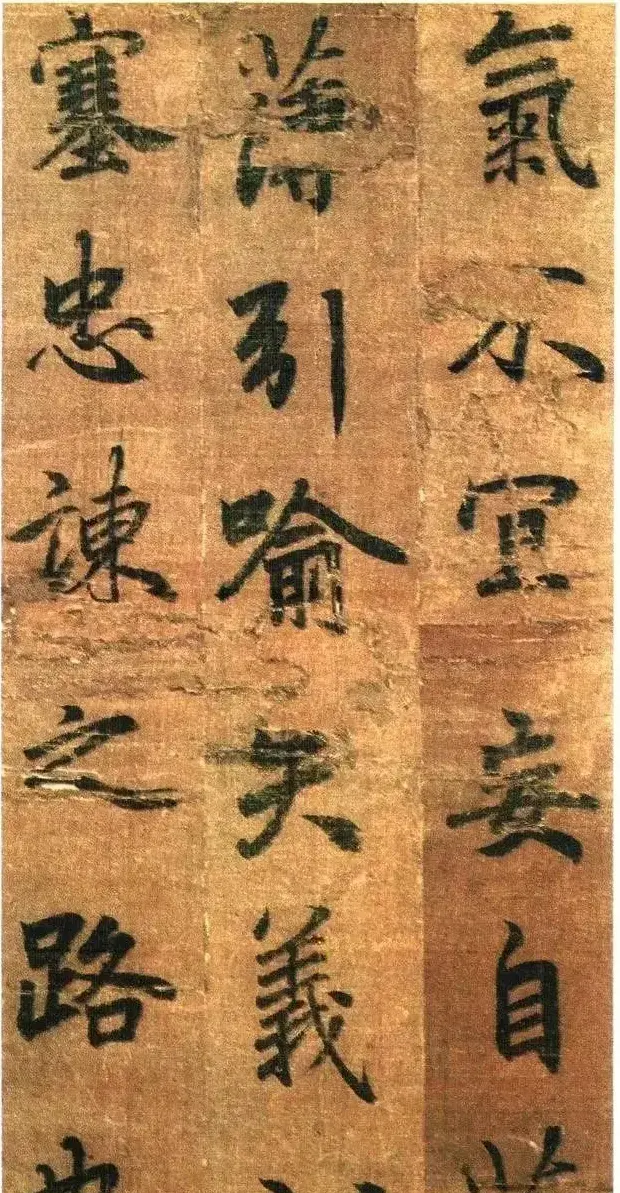 氣不宜妄自
薄引喻失義
塞忠諫之路